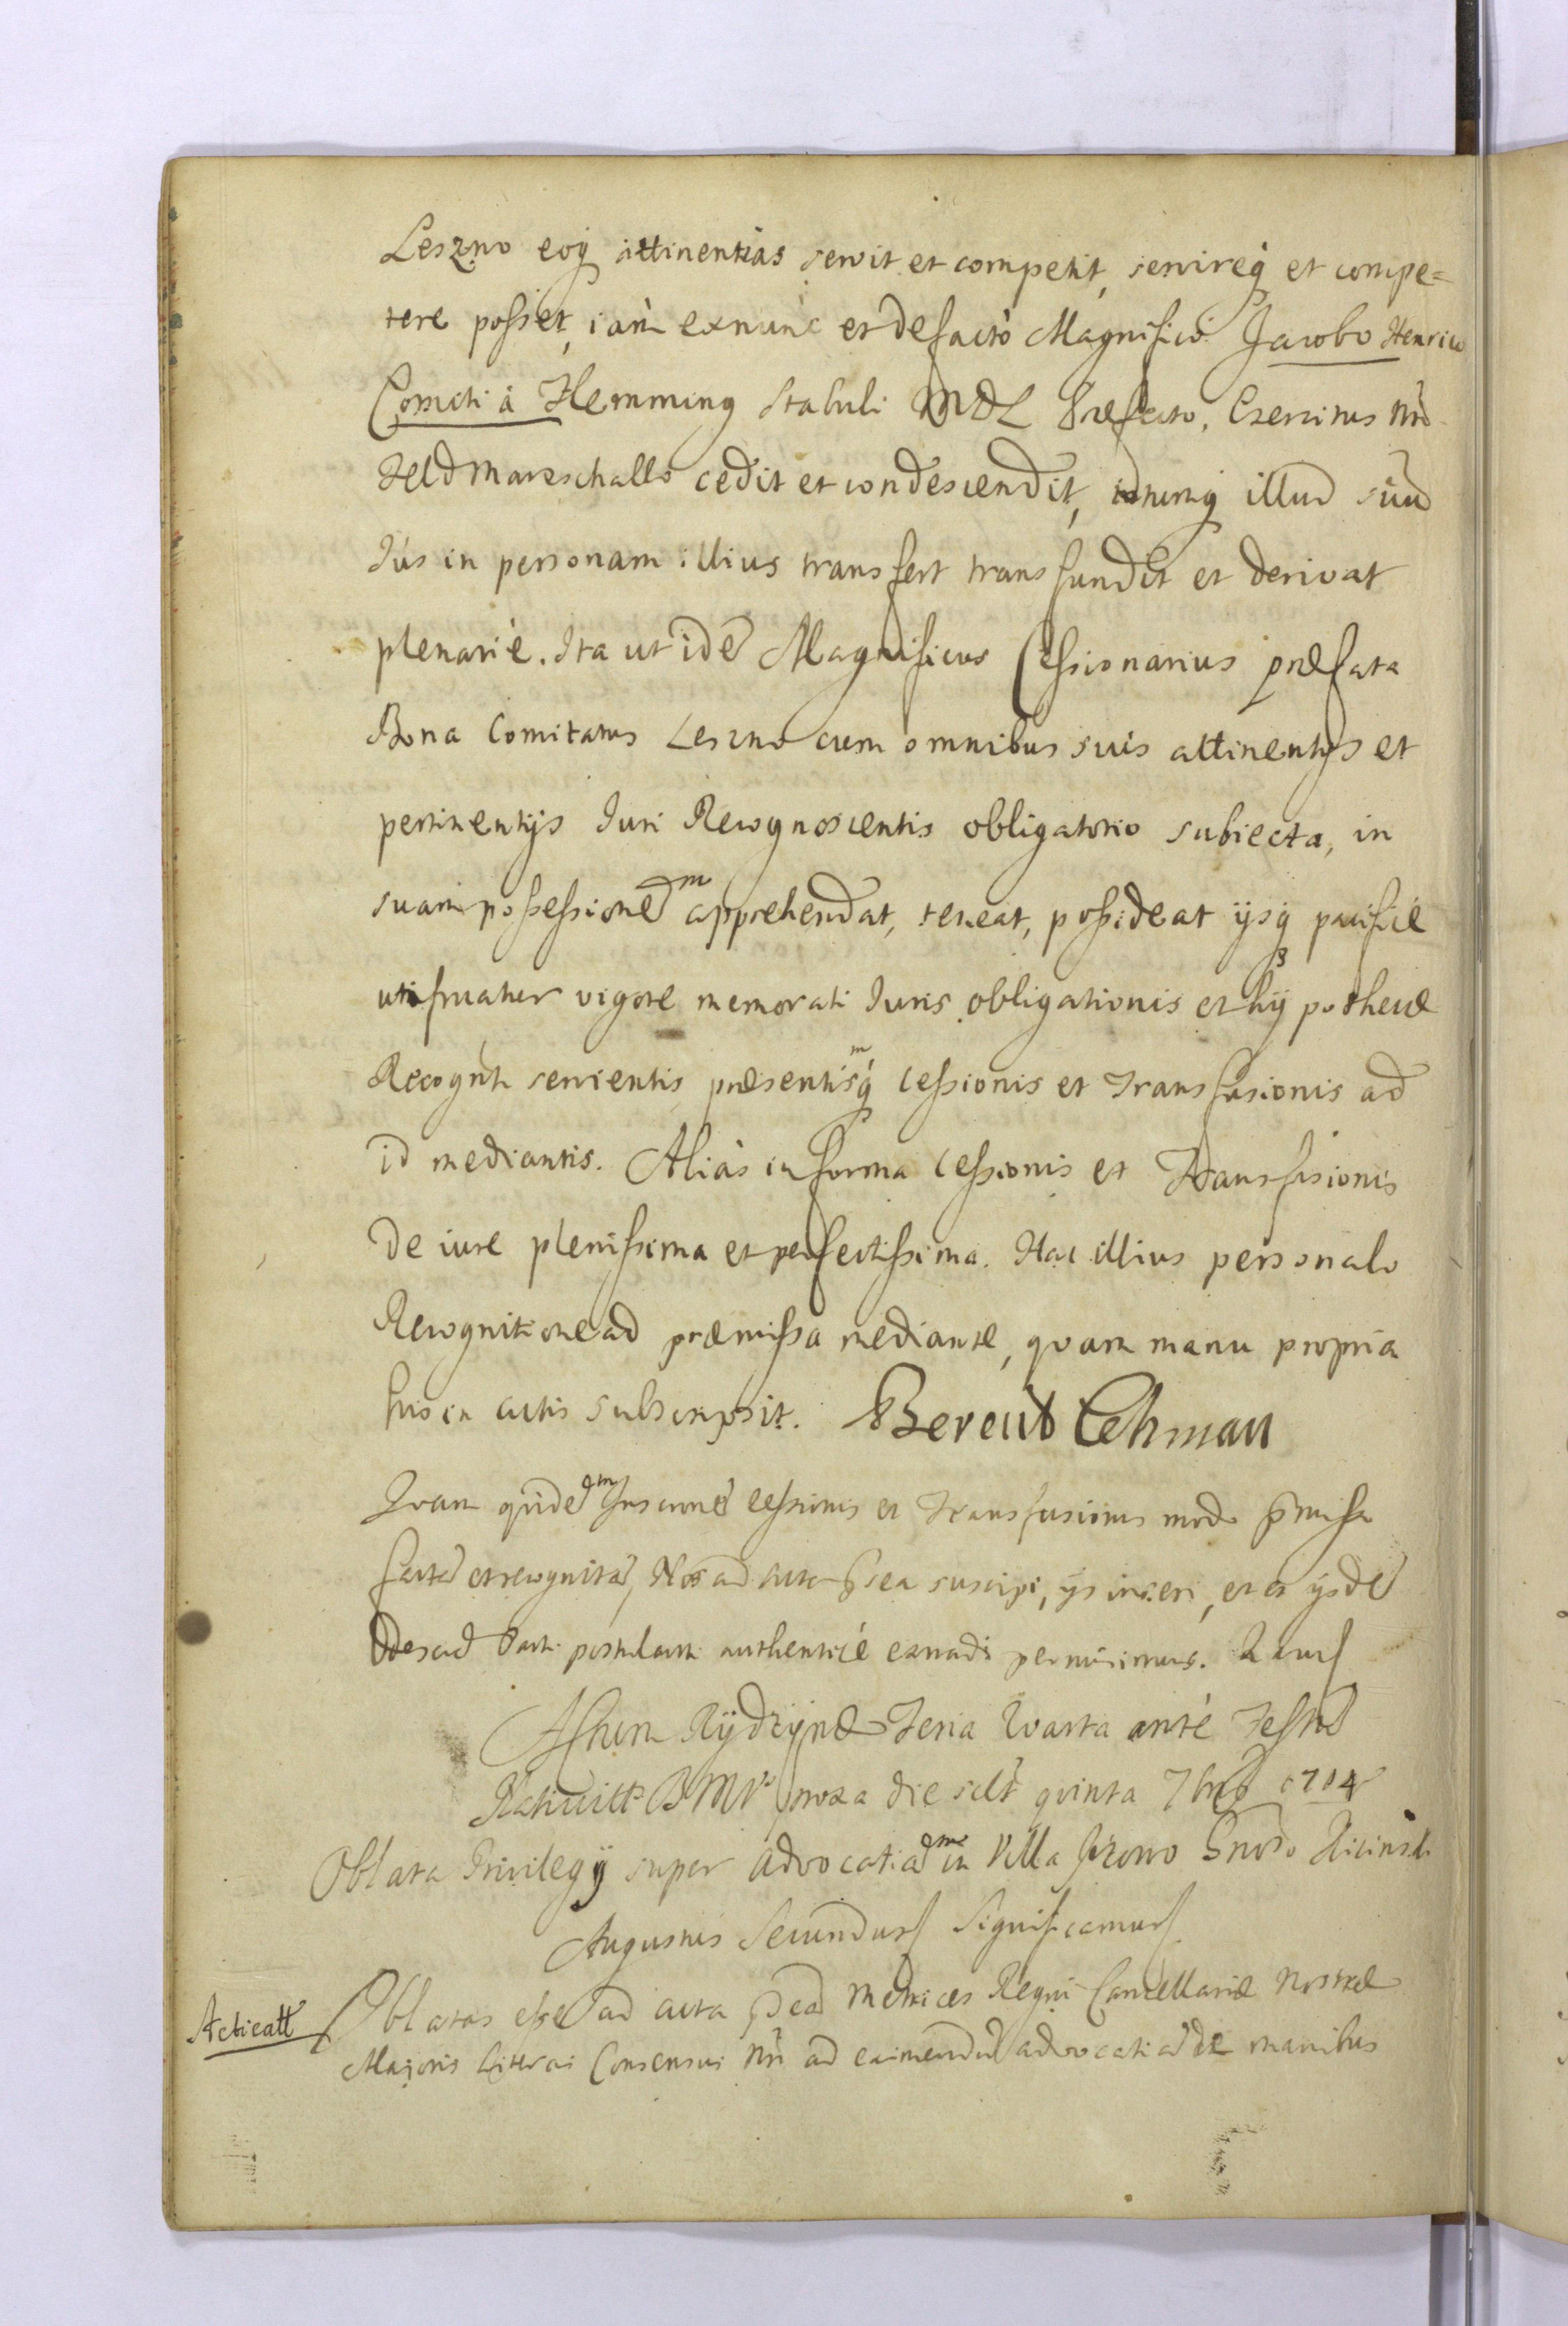 Leszno eoq attinentias servit et competit, servireq et compe=
tere posset, iam exnunc et defacto Magnifico Jacobo Henrico
Comiti à Flemming Stabuli MDL Præfecto, Exercitus Nri
Feldmareschallo cedit et condescendit, illud suu
Jus in personam illius transfert transfundit et derivat
plenariè. Ita ut ide Magnificus Cessionarius præfata
Bona Comitatus Leszno cum omnibus suis attinentijs et
pertinentijs Juri Recognoscentis obligatorio subiecta, in
suam possessione apprehendat, teneat, possideat ijsq pacificè
utifruatur vigore memorati Juris obligationis et hÿpothecæ
Recognti servientis præsentisq cessionis et Transfusionis ad
id mediantis. Aliàs in forma cessionis et Transfusionis
de iure plenissima et perfectissima. Hac illius personali
Recognitione ad præmissa mediante, quam manu propria
hisce in actis subscripsit. Berend Lehman
Quam quide cessionis et Transfusionis modo pmisso
facta et recognita, Nos ad acta psea suscipi, ijs inseri, et ex ijsde
Parti postulanti authenticè extradi permisimus. In cuius
Actum Rÿdzÿnæ Feria Quarta antè Festu
Nativitts BMV proxa die sclt quinta 7bris 1704
Oblata Privilegÿ super advocatia in Villa Gnoso
Augustus Secundus Significamus
Acticatt Oblatas esse ad acta Metrices Regni Cancellariæ Nostræ
Majoris Litteras Consensus Nri ad eximendu advocatia de manibus